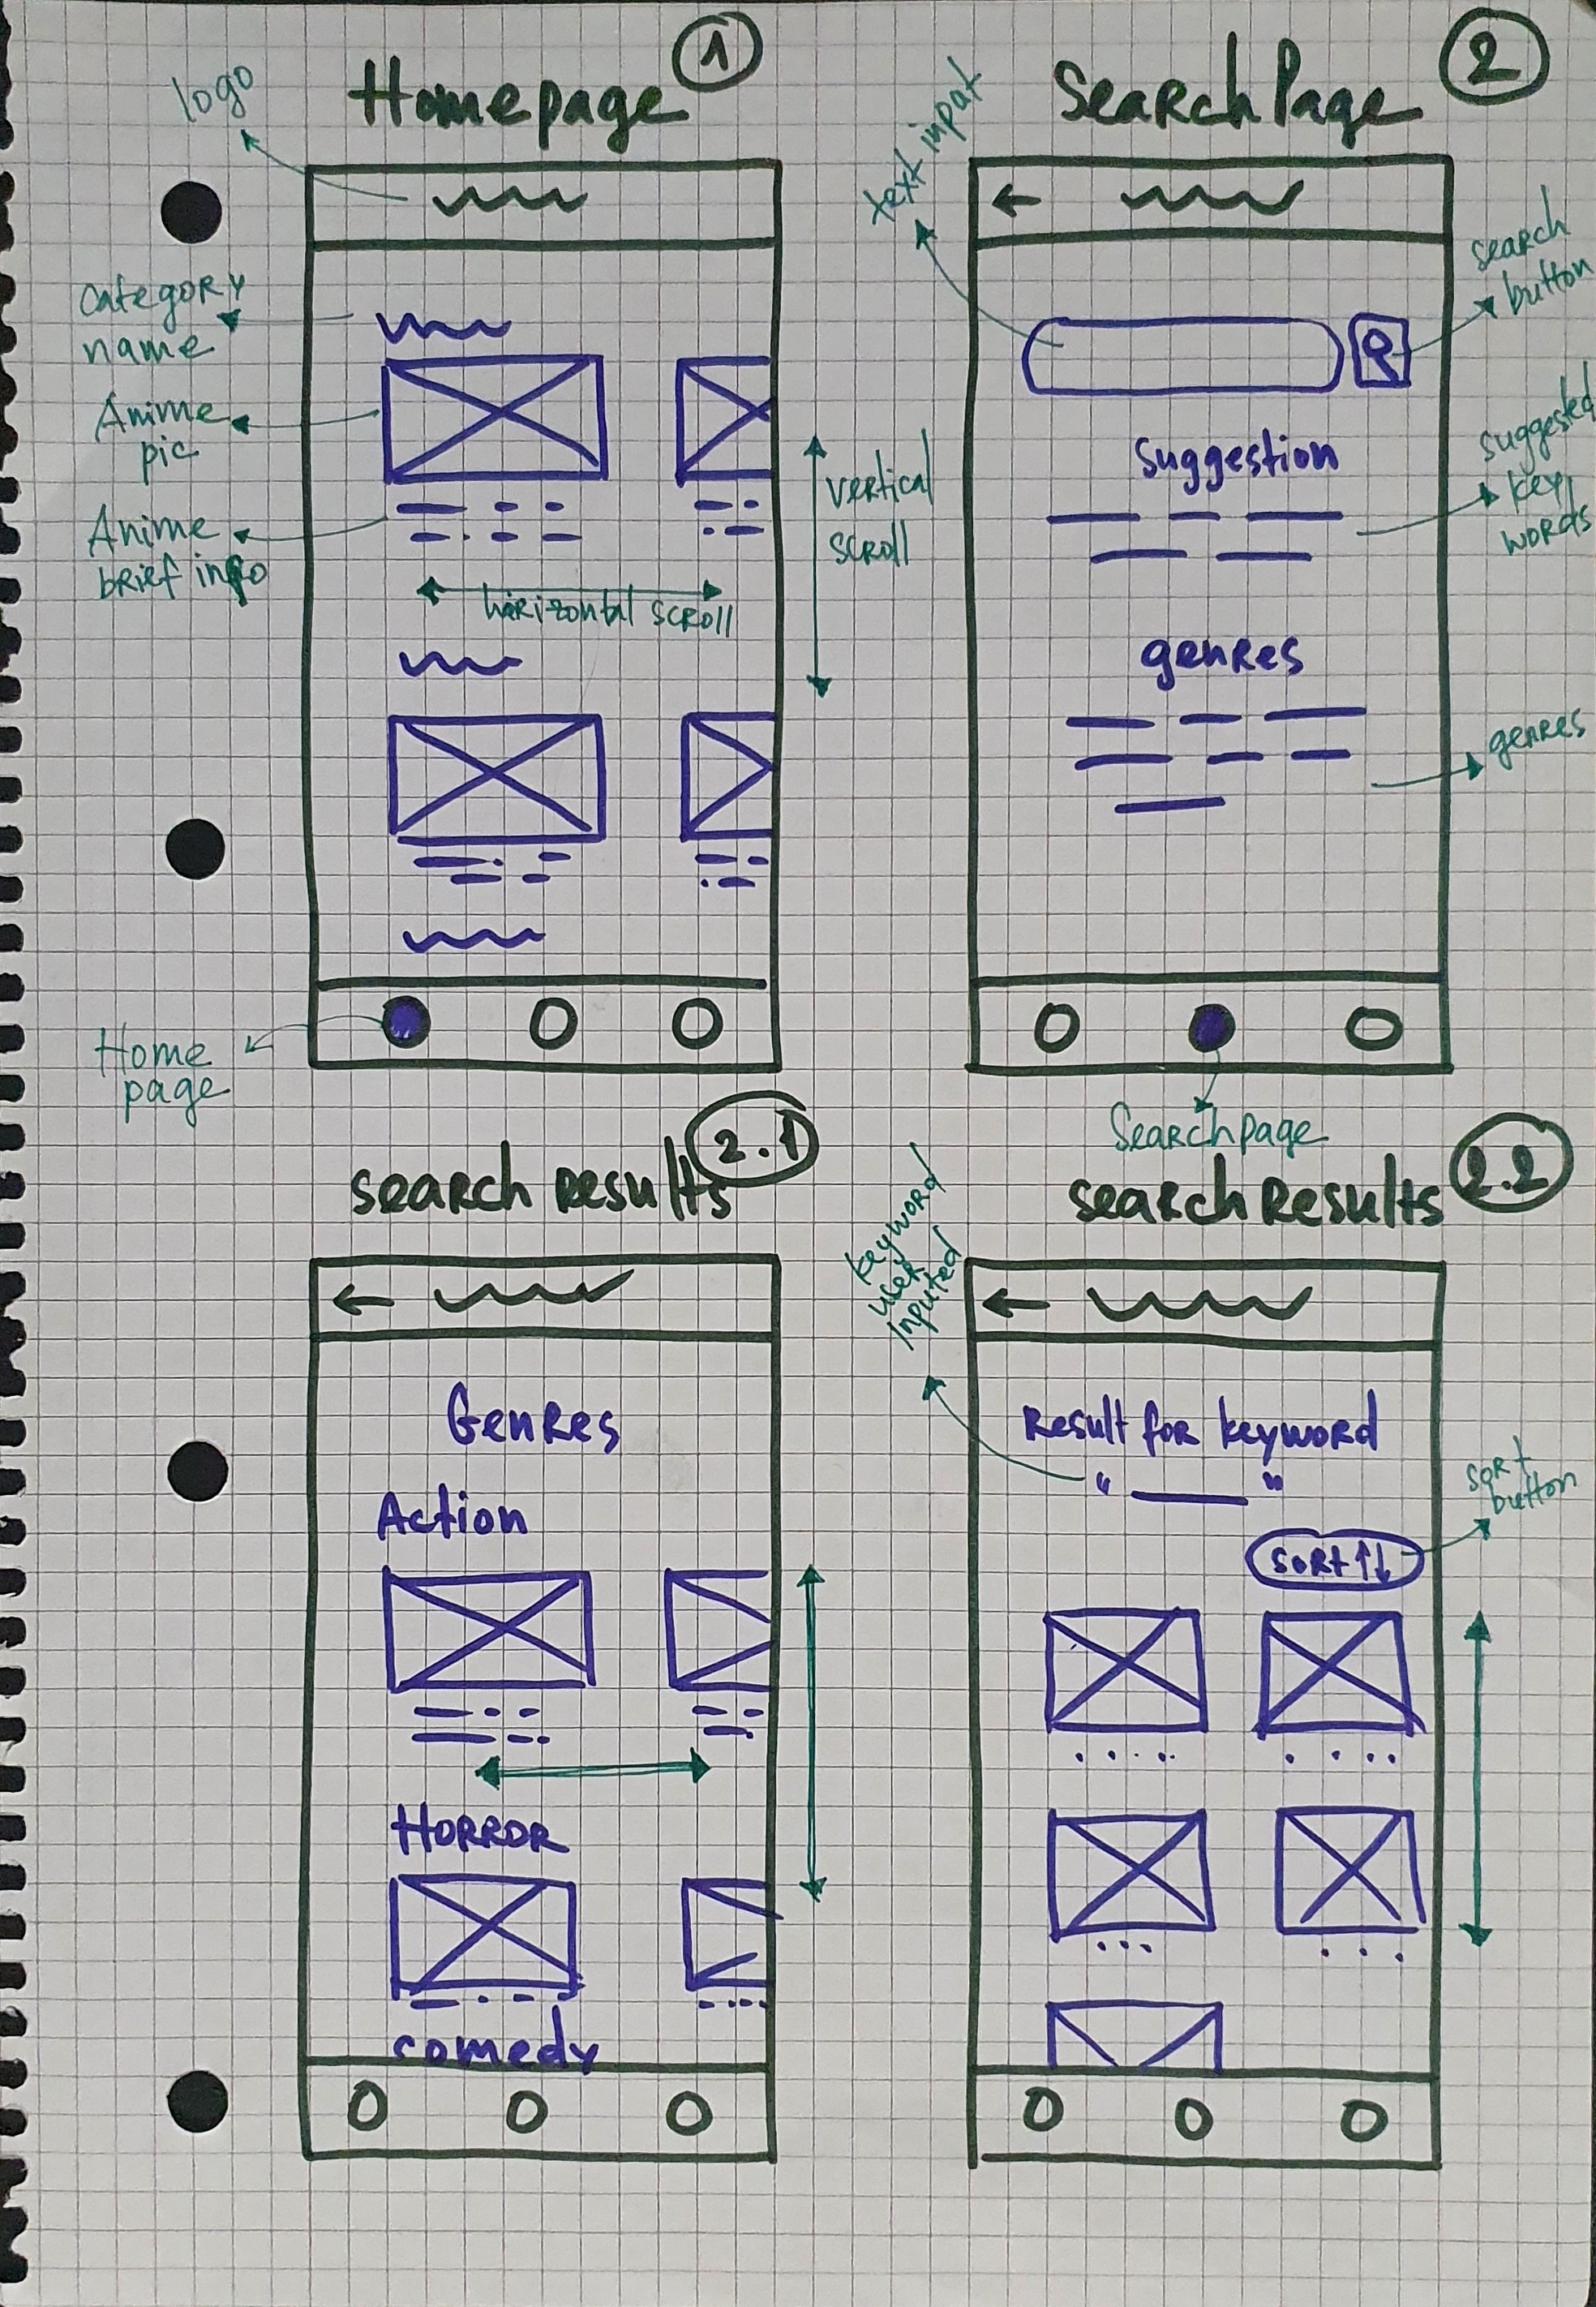 Homepage
1
logo
category
name
Anime
pic
Anime
brief info
vertical
scroll
horizontal scroll
Home
page
SearchPage
2
text input
search
button
suggestion
suggested
key
words
genres
genres
Searchpage
search Results
2.1
Genres
Action
Horror
comedy
search Results
2.2
keyword
user
inputed
Result for keyword
" ____ "
sort
button
sort ↑↓